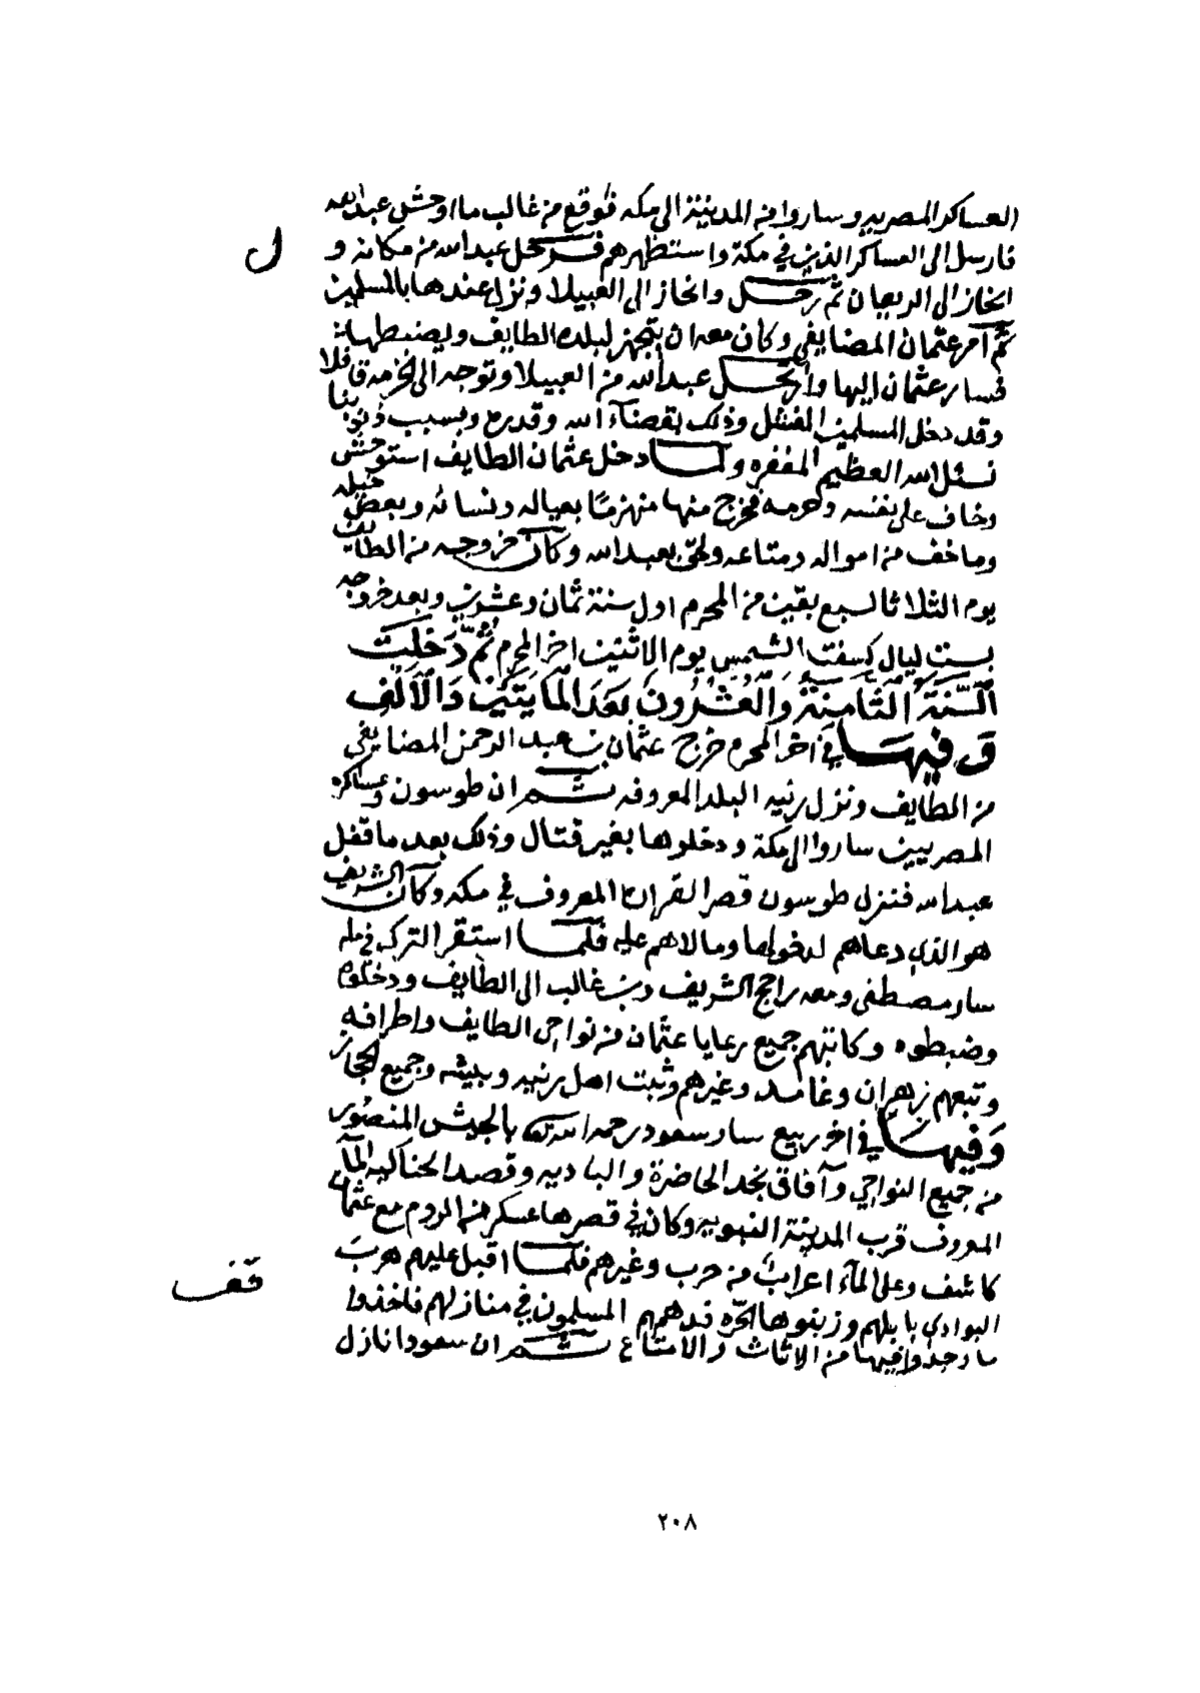 العساكر المصريه وساروا من المدينة الى مكه فوقع من غالب ما اوحش عبدالله
فارسل الى العساكر الذين في مكة واستظهرهم فرحل عبدالله من مكانه و
انحاز الى الريعان ثم رحل وانحاز الى العبيلا ونزل عندها بالمسلمين
ل
ثم آمر عثمان المضايفي وكان معه ان يتجهز لبلده الطايف ويضبطها
فسار عثمان اليها وارتحل عبدالله من العبيلا وتوجه الى الخرمه قافلا
وقد دخل المسلمين الفشل وذلك بقضاء الله وقدره وبسبب ذنوبنا
نسئل الله العظيم المغفره ولما دخل عثمان الطايف استوحش
وخاف على نفسه وحرمه فخرج منها منهزمًا بعياله ونسائه وبعض خيله
وما خف من امواله ومتاعه ولحق بعبدالله وكان خروجه من الطايف
يوم الثلاثا لسبع بقين من المحرم اول سنة ثمان وعشرين وبعد خروجه
بست ليال كسفت الشمس يوم الاثنين اخر المحرم ثُمَّ دَخَلَت
السَّنَةُ الثَّامِنَةُ وَالْعُشْرُونَ بَعَدَ المَايَتَيْن وَالْاَلْف
وَفيهَا في آخر المحرم خرج عثمان بن عبد الرحمن المضايفي
من الطايف ونزل رنيه البلد المعروفه ثم ان طوسون وعساكره
المصريين ساروا الى مكة ودخلوها بغير قتال وذلك بعد ما قفل
عبدالله فنزل طوسون قصر القراره المعروف في مكه وكان الشريف
هو الذي دعاهم لدخولها ومالاهم عليه فلما استقر الترك في مكه
سار مصطفى ومعه راجح الشريف وبن غالب الى الطايف ودخلوه
وضبطوه وكاتبهم جميع رعايا عثمان من نواحي الطايف واطرافه
وتبعهم زهران وغامد وغيرهم وثبت اهل رنيه وبيشه وجميع الحجاز
وَفيهَا في اخر ربيع سار سعود رحمه الله تعالى بالجيش المنصور
من جميع النواحي وآفاق نجد الحاضرة والباديه وقصد الحناكيه المآء
المعروف قرب المدينة النبويه وكان في قصرها عسكر من الروم مع عثمان
كاشف وعلى المآء اعراب من حرب وغيرهم فلما اقبل عليهم هربَ
البوادي بابلهم وزبنوها الحرّه فدهمهم المسلمون في منازلهم فاخذوا
ما وجدوا فيها من الاثاث والامتاع ثم ان سعودا نازل
قف
٢٠٨